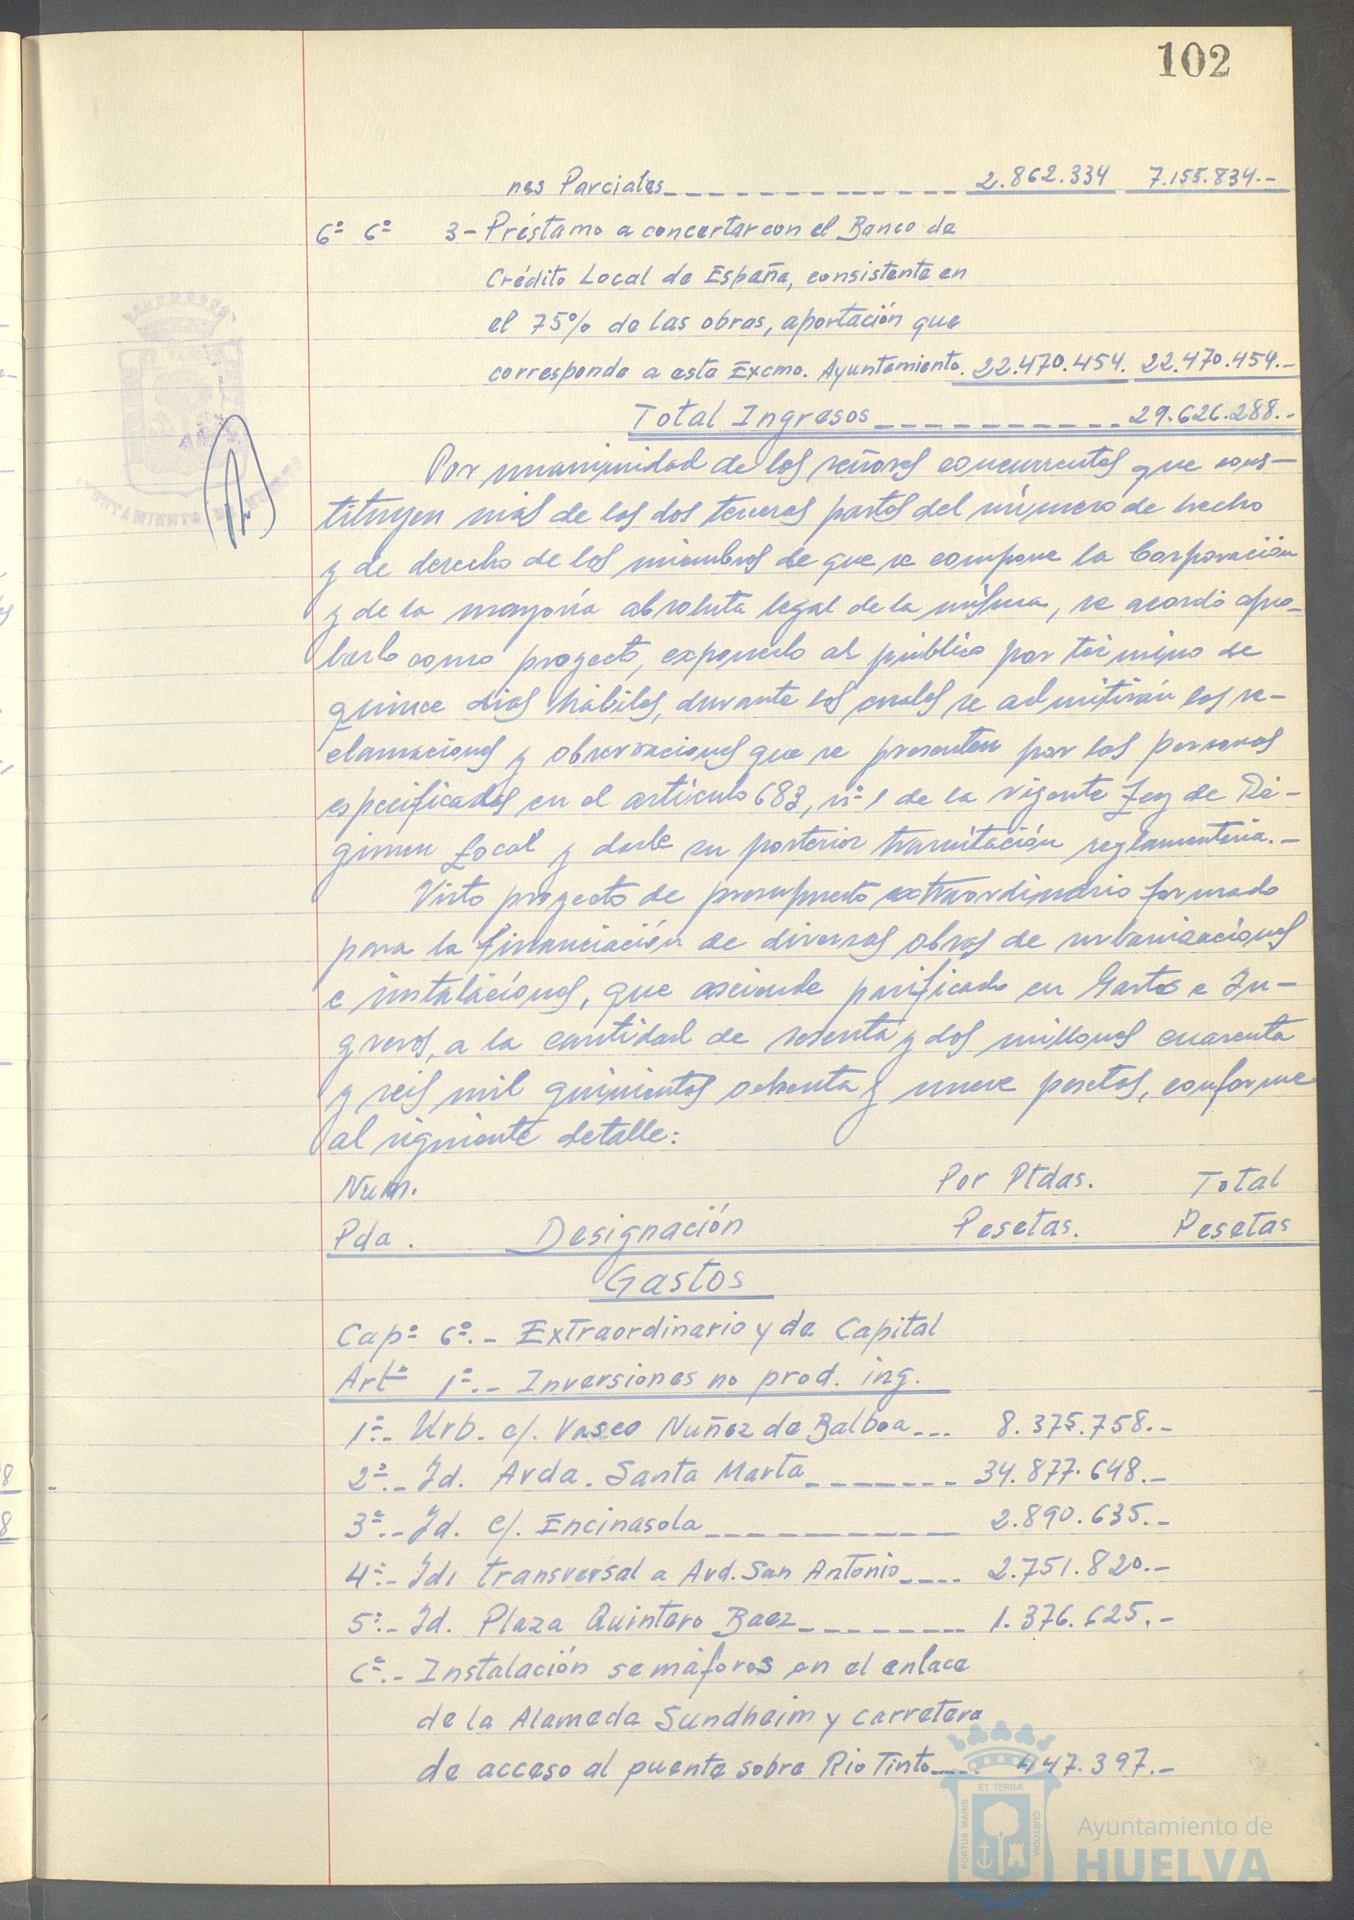 102
nes Parciales 2.862.334 7.155.834.-
6º 6º 3- Préstamo a concertar con el Banco de
Crédito Local de España, consistente en
el 75% de las obras, aportación que
corresponde a este Excmo. Ayuntamiento. 22.470.454. 22.470.454.-
Total Ingresos 29.626.288.-
Por unanimidad de los señores concurrentes que cons-
tituyen más de las dos terceras partes del número de hecho
y de derecho de los miembros de que se compone la Corporación
y de la mayoría absoluta legal de la misma, se acordó apro-
barlo como proyecto, exponerlo al público por término de
quince días hábiles, durante los cuales se admitirán las re-
clamaciones y observaciones que se presenten por las personas
especificadas en el artículo 683, nº 1 de la vigente Ley de Ré-
gimen Local y darle su posterior tramitación reglamentaria.-
Visto proyecto de presupuesto extraordinario formado
para la financiación de diversas obras de urbanizaciones
e instalaciones, que asciende parificado en Gastos e In-
gresos, a la cantidad de sesenta y dos millones cuarenta
y seis mil quinientas ochenta y nueve pesetas, conforme
al siguiente detalle:
Num. Por Ptdas. Total
Pda. Designación Pesetas. Pesetas
Gastos
Capº 6º.- Extraordinario y de Capital
Artº 1º.- Inversiones no prod. ing.
1º.- Urb. c/. Vasco Nuñez de Balboa 8.375.758.-
2º.- Id. Avda. Santa Marta 34.877.648.-
3º.- Id. c/. Encinasola 2.890.635.-
4º.- Id. transversal a Avd. San Antonio 2.751.820.-
5º.- Id. Plaza Quintero Baez 1.376.625.-
6º.- Instalación semáforos en el enlace
de la Alameda Sundheim y carretera
de acceso al puente sobre Rio Tinto 447.397.-
ET TERRÆ
PORTUS MARIS
CUSTODIA
Ayuntamiento de
HUELVA